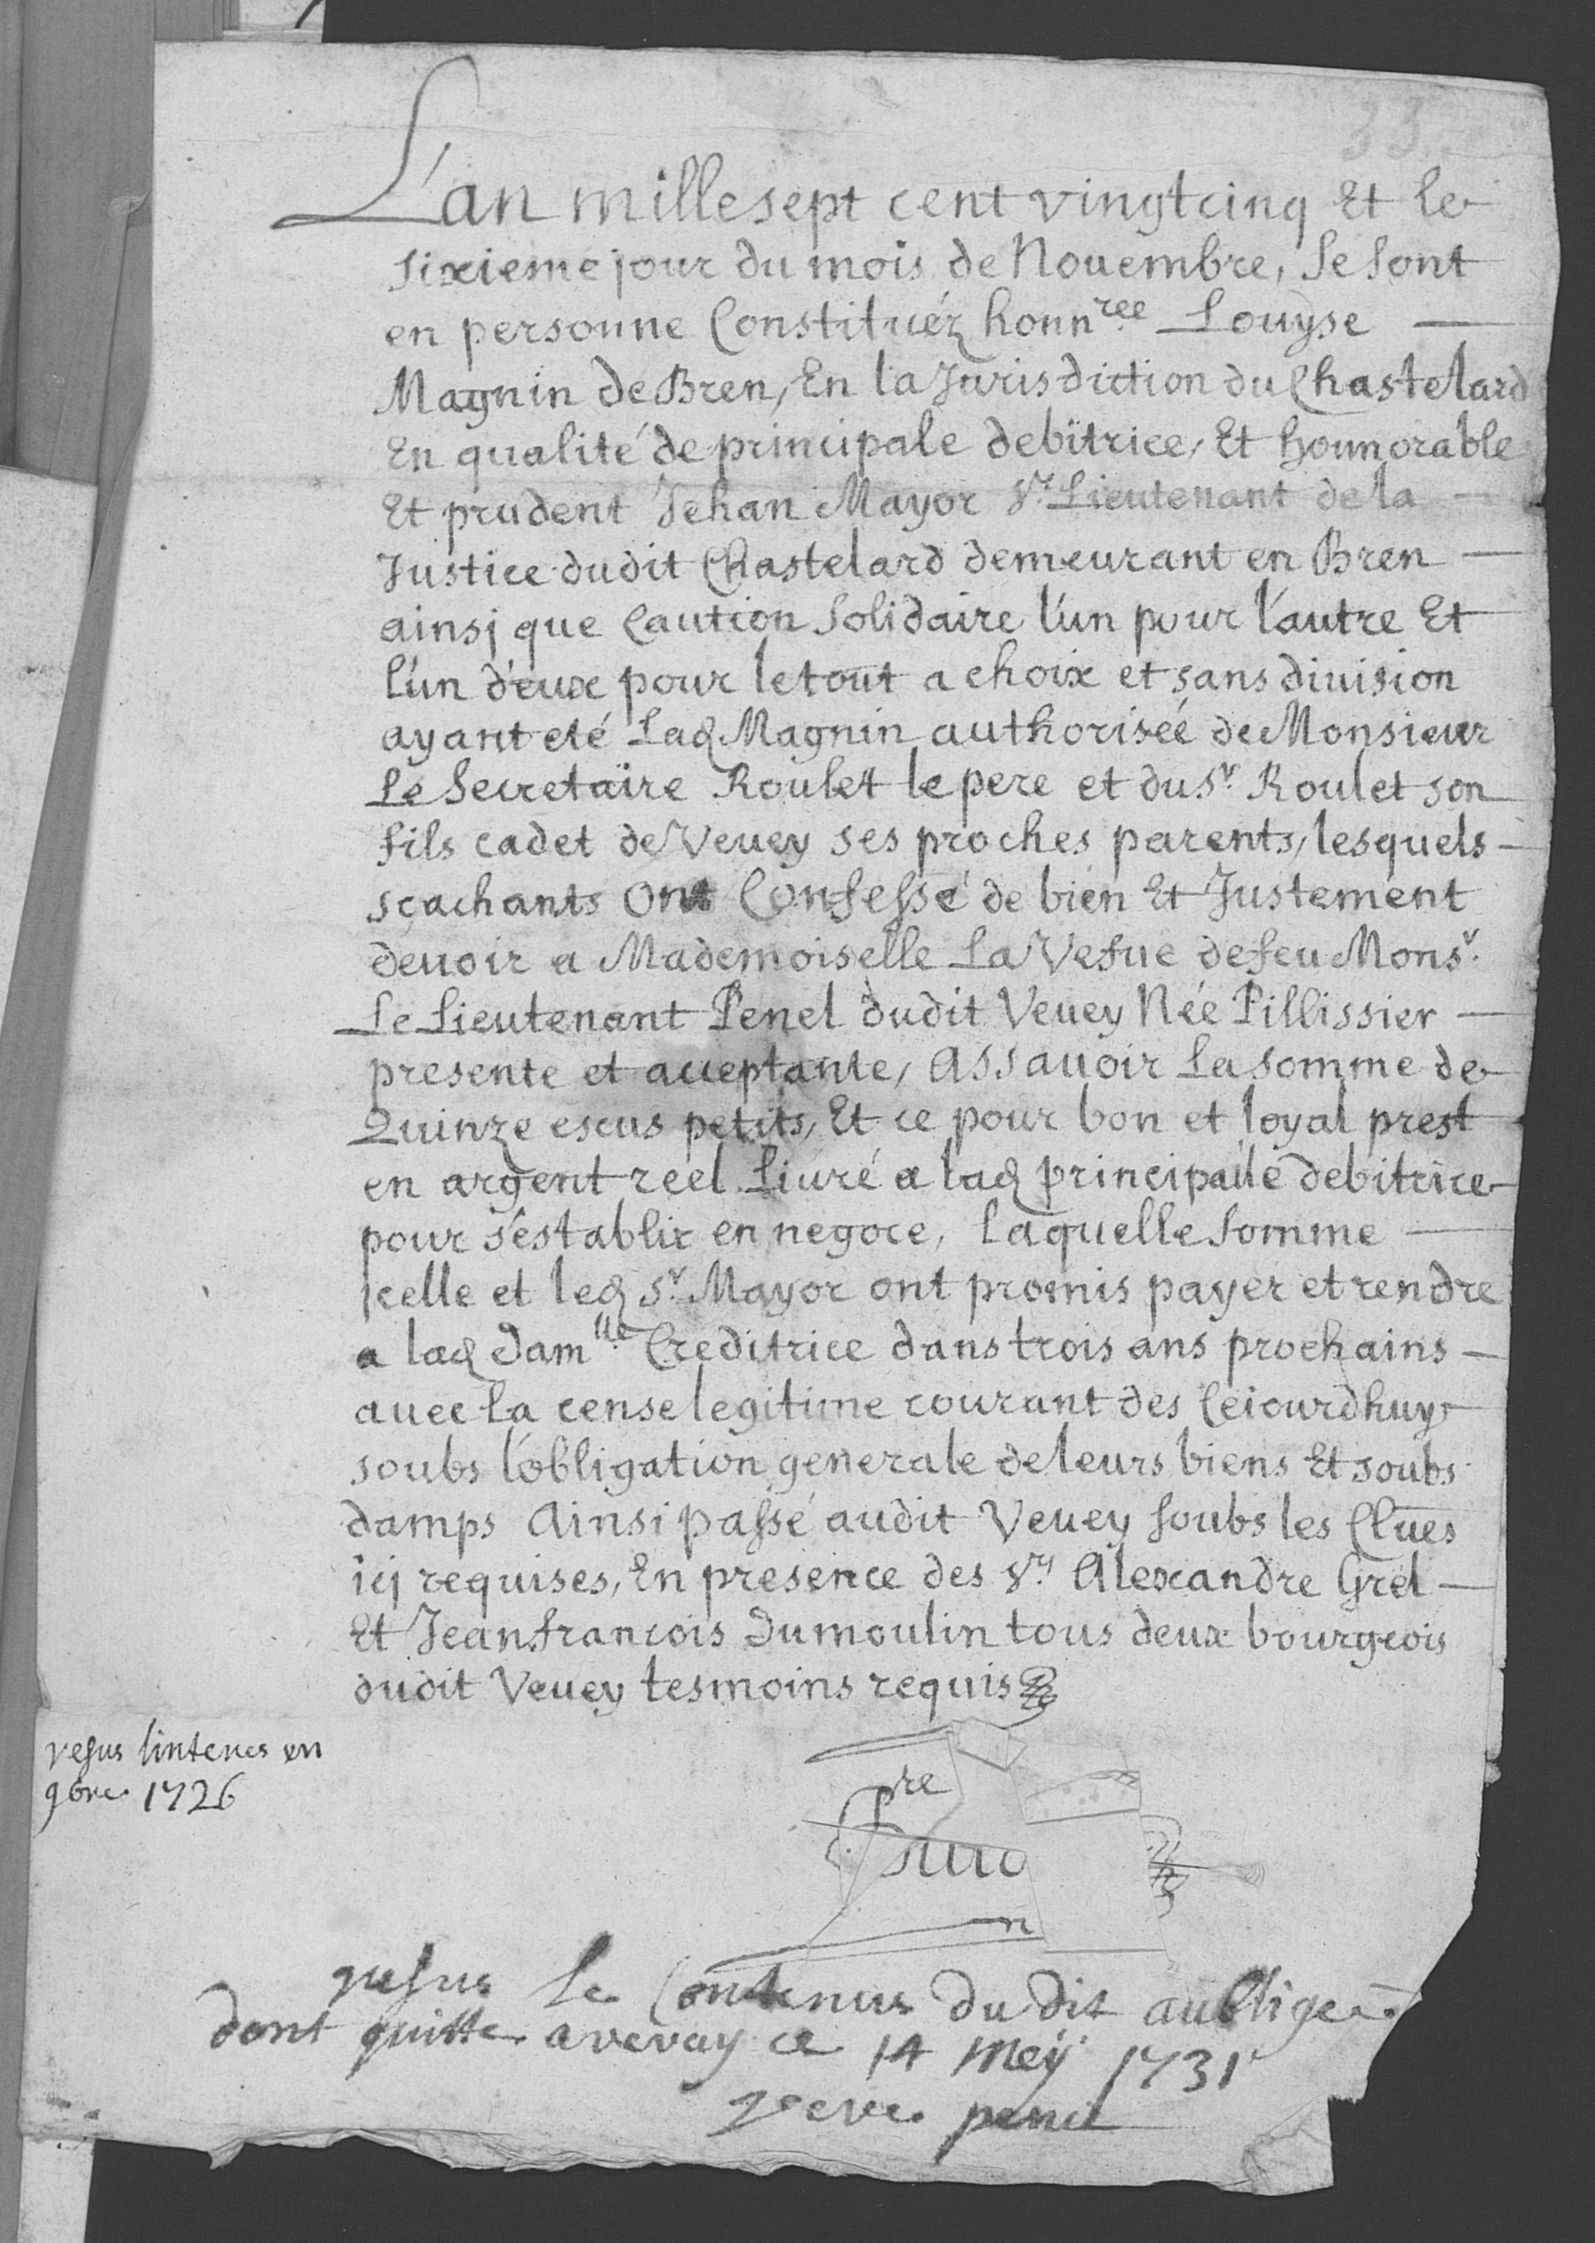 33
L'an mille sept cent vingt cinq Et le
sixieme jour du mois de Nouembre, se sont
en personne Constituéz honn.rée Louyse
Magnin de Bren, En la Jurisdiction du Chastelard
En qualité de principale debitrice, Et honnorable
Et prudent Jehan Mayor Sr. Lieutenant de la
Justice dudit Chastelard demeurant en Bren
ainsj que Caution Solidaire l'un pour l'autre Et
l'un d'eux pour le tout a choix et sans diuision
ayant eté Lad. Magnin authorisée de Monsieur
Le Secretaire Roulet le pere et du Sr. Roulet son
fils cadet de Veuey ses proches parents, lesquels
sçachants ont Confessé de bien Et Justement
deuoir a Mademoiselle La Vefue de feu Monsr.
Le Lieutenant Penel dudit Veuey Née Pillissier
presente et acceptante, Assauoir La somme de
Quinze escus petits, Et ce pour bon et loyal prest
en argent reel Liuré a lad. principalle debitrice
pour s'establir en negoce, laquelle somme
jcelle et led. Sr. Mayor ont promis payer et rendre
a lad. Damlle Creditrice dans trois ans prochains
auec la cense legitime courant des Ceiourdhuy
soubs l'obligation generale de leurs biens Et soubs
damps Ainsi passé audit Veuey soubs les Clues
icj requises, En presence des Srs. Alexandre Grel
Et Jean francois Dumoulin tous deux bourgeois
dudit Veuey tesmoins requis
resus linteres en
9bre 1726
resus Le Contenus du dit aubligee
dont quitte a vevay ce 14 Meÿ 1731
veve penel